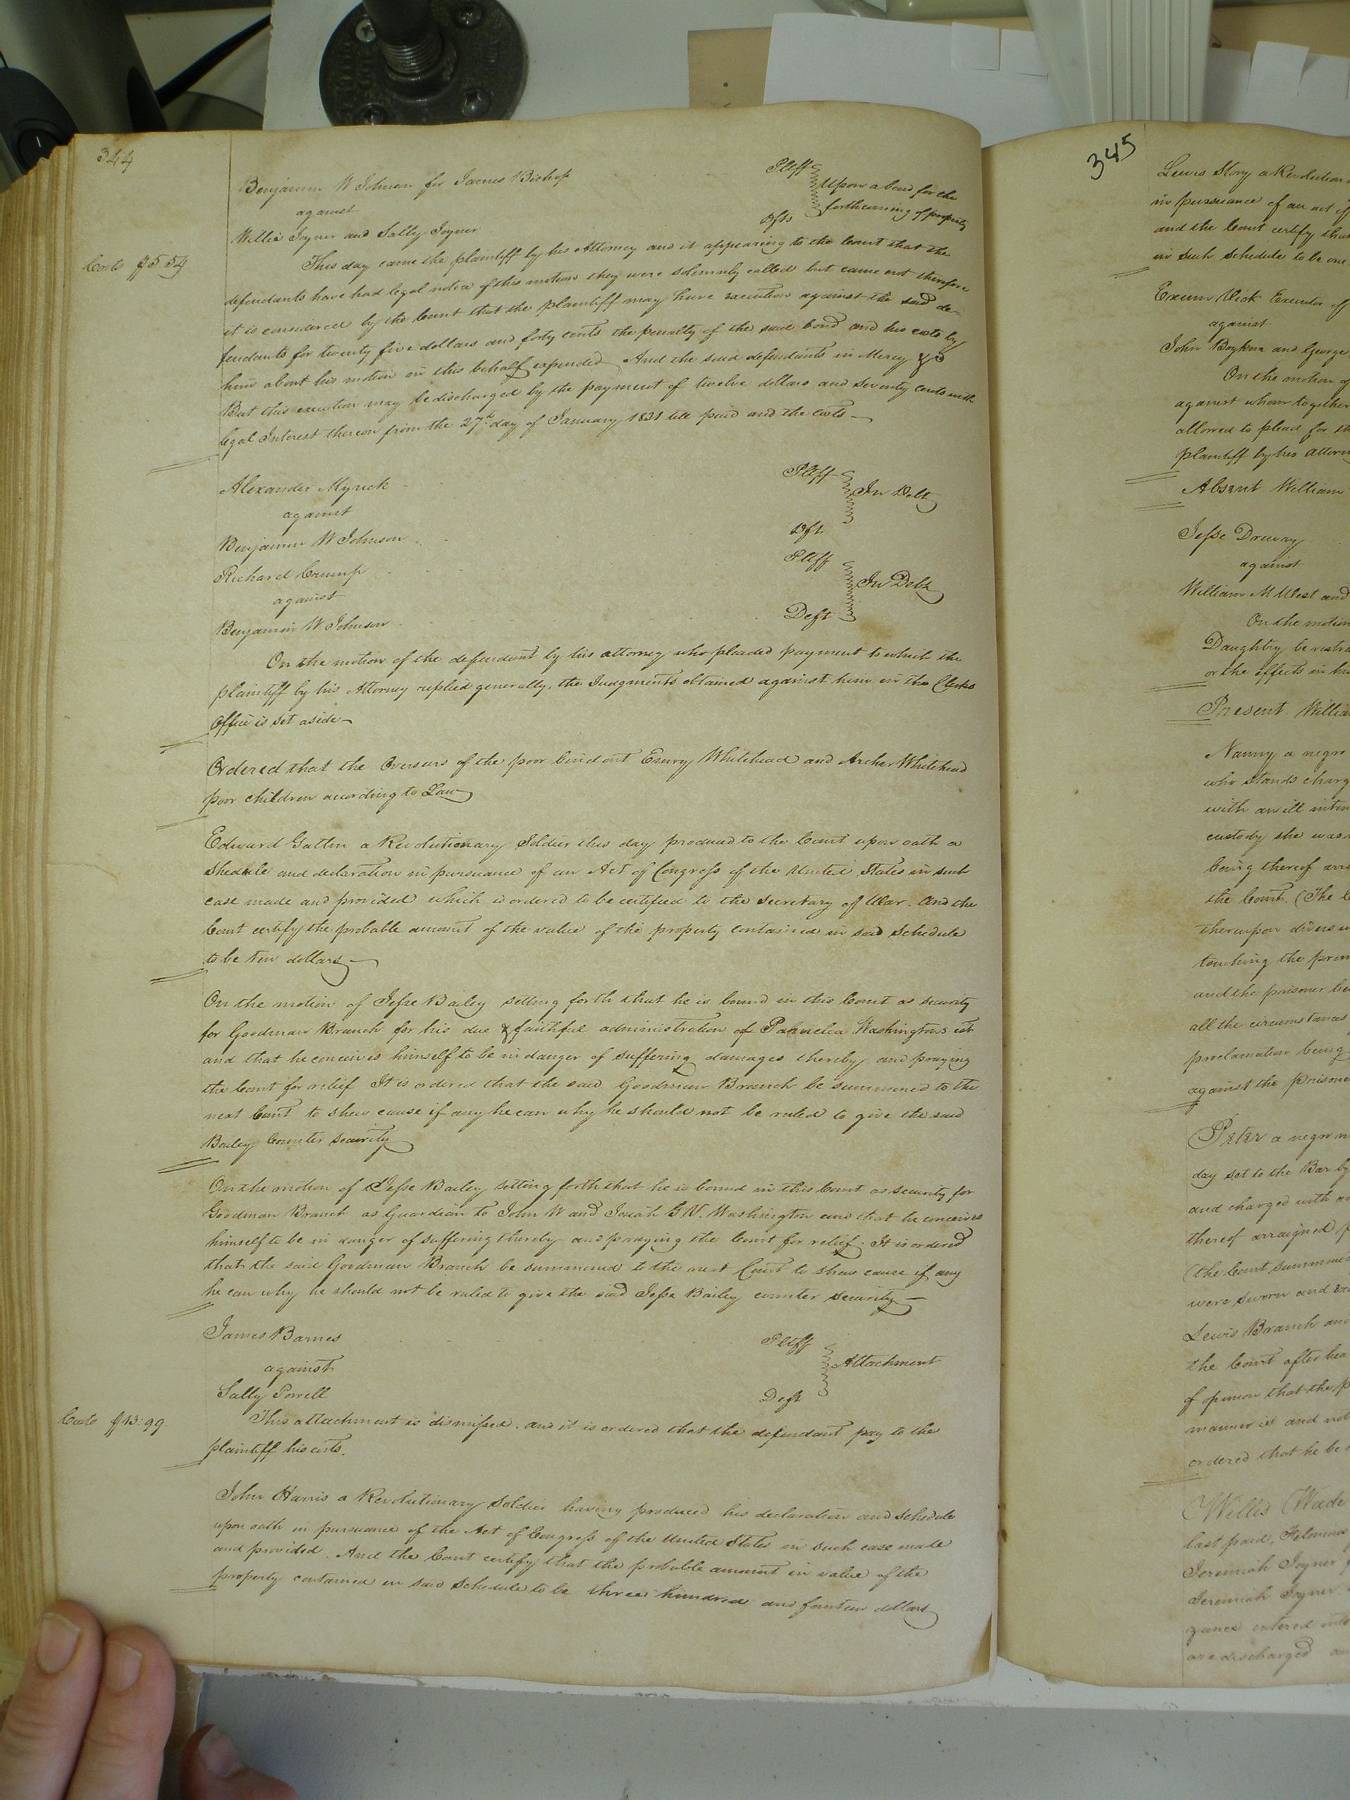 344
Benjamin W Johnson for James Bishop Pltff
against Upon a bond for the
Willie Joyner and Sally Joyner Dfts forthcoming of property
Costs $5.54
This day came the plaintiff by his Attorney and it appearing to the Court that the
defendants have had legal notice of this motion they were solemnly called but came not therefore
it is considered by the Court that the plaintiff may have execution against the said de-
fendants for twenty five dollars and forty cents the penalty of the said bond and his costs by
him about his motion in this behalf expended And the said defendants in Mercy &c
But this execution may be discharged by the payment of twelve dollars and seventy cents with
legal Interest thereon from the 27th day of January 1831 till paid and the costs
Alexander Myrick Pltff
against In Debt
Benjamin W Johnson Dft
Richard Crump Pltff
against In Debt
Benjamin W Johnson Deft
On the motion of the defendant by his attorney who pleaded payment to which the
plaintiff by his Attorney replied generally, the Judgments obtained against him in the Clerks
Office is set aside
Ordered that the Overseers of the poor bind out Emry Whitehead and Archer Whitehead
poor children according to Law
Edward Gatlin a Revolutionary Soldier this day produced to the Court upon oath a
Shedule and declaration in pursuance of an Act of Congress of the United States in such
case made and provided which is ordered to be certified to the Secretary of War. And the
Court certify the probable amount of the value of the property contained in said Schedule
to be ten dollars
On the motion of Jesse Bailey setting forth that he is bound in this Court as security
for Goodman Branch for his due & faithful administration of Washingtons est
and that he conceives himself to be in danger of suffering damages thereby and praying
the Court for relief It is ordered that the said Goodman Branch be summoned to the
next Court to shew cause if any he can why he should not be ruled to give the said
Bailey Counter security
On the motion of Jesse Bailey setting forth that he is bound in this Court as security for
Goodman Branch as Guardian to John W and Josiah G N. Washington and that he conceives
himself to be in danger of suffering thereby and praying the Court for relief. It is ordered
that the said Goodman Branch be summoned to the next Court to shew cause if any
he can why he should not be ruled to give the said Jesse Bailey counter security
James Barnes Pltff
against Attachment
Sally Porrell Deft
Costs $13.99
This attachment is dismissed. and it is ordered that the defendant pay to the
plaintiff his costs.
John Harris a Revolutionary Soldier having produced his declaration and schedule
upon oath in pursuance of the Act of Congress of the United States in such case made
and provided. And the Court certify that the probable amount in value of the
property contained in said Schedule to be three hundred and fourteen dollars
345
Lewis Story a Revolution
in pursuance of an act of
and the Court certify that
in such schedule to be one
Exum Vick Executor of
against
John Boykin and George
On the motion of
against whom together
allowed to plead for the
plaintiff by his attorn
Absent William
Jesse Drewry
against
William M West and
On the motion
Daughtry be restra
or the effects in his
Present Willia
Nanny a negro
who stands charg
with an ill inten
custody she was
being thereof arr
the Court. (The C
thereupon divers w
touching the prem
and the prisoner be
all the circumstances
proclamation being
against the prisone
Peter a negro m
day set to the Bar by
and charged with
thereof arraigned p
(the Court summon
were sworn and ex
Lewis Branch and
the Court after hea
of opinion that the p
manner is and not
ordered that he be
Willis Wade
last past,
Jeremiah Joyner
Jeremiah Joyner
zance entered into
are discharged